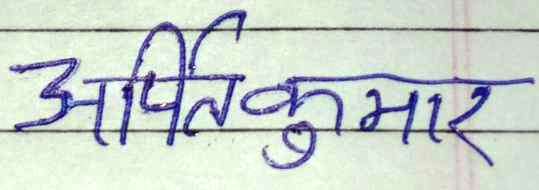 अर्पित कुमार